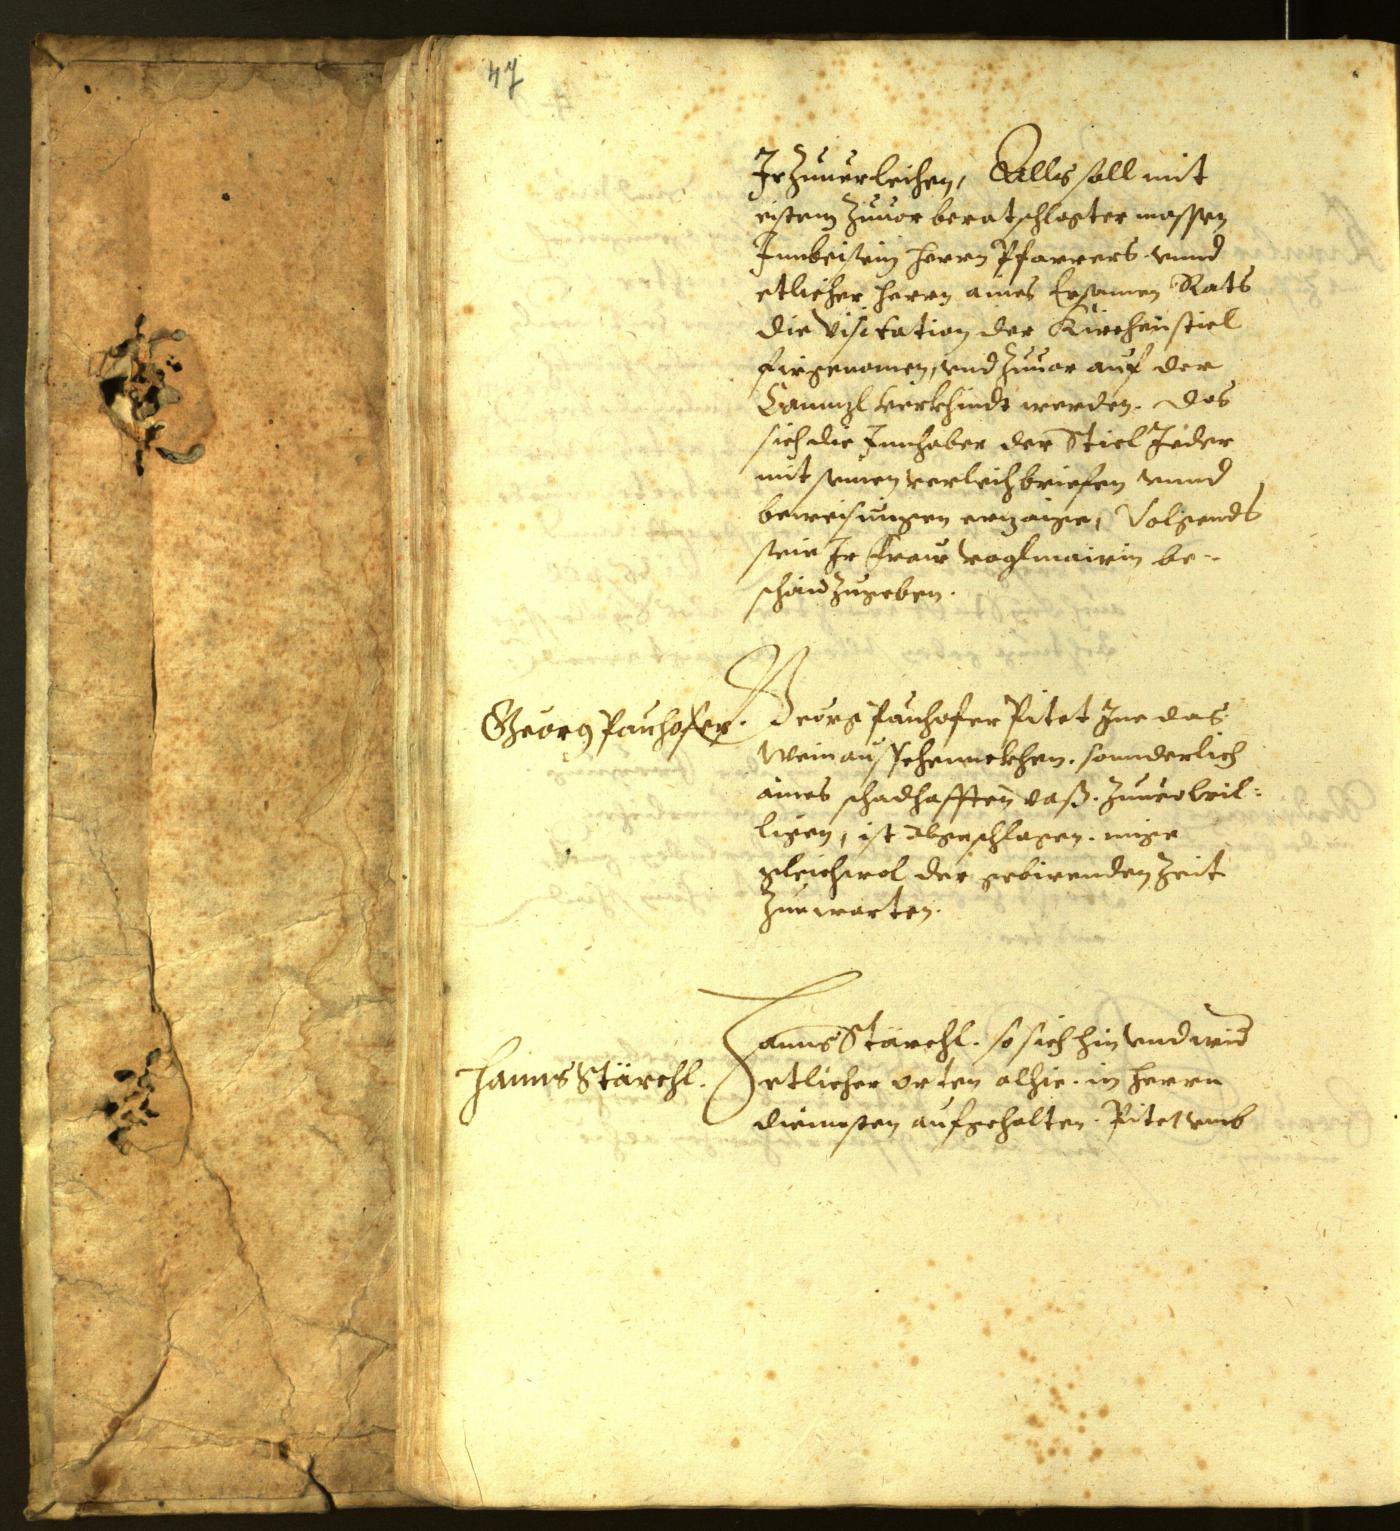 47
Ir Zuuerleihen, Alls soll mit
eistem Zuuor beratschlagter massen
Innbeisein herrn Pfarrers vnnd
etlicher herrn aines Ersamen Rats
die visitation der Kirchenstiel
firgenomen, vnd Zuuor auf der
Canntzl verkhindt werden. das
sich die Innhaber der Stiel Jeder
mit seinen verleichbriefen vnnd
beweisungen erzaige, Volgends
seie Ir Fraw voglmairin be-
schaid Zugeben.
Georg Pauhofer.
Georg Pauhofer Pitet Ime das
Wein ausschennckhen. sonnderlich
aines schadhafften vaß. Zuuerbril-
ligen, ist abgeschlagen. müge
gleichwol der gebirenden Zeit
Zuewarten.
Hanns Stärchl.
Hanns Stärchl. so sich hin vnd wid
etlicher orten alhie. in herrn
diennsten aufgehalten. Pitet vmb